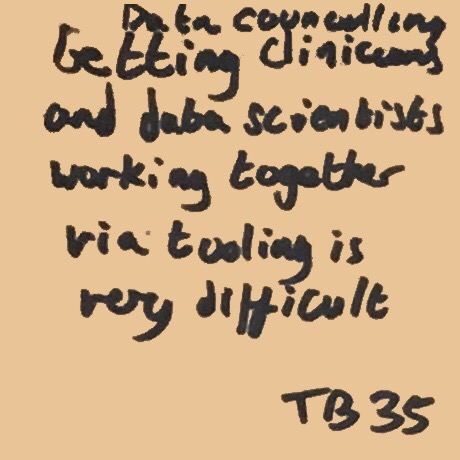 Data councelling
Getting clinicians
and data scientists
working together
via tooling is
very difficult
TB35